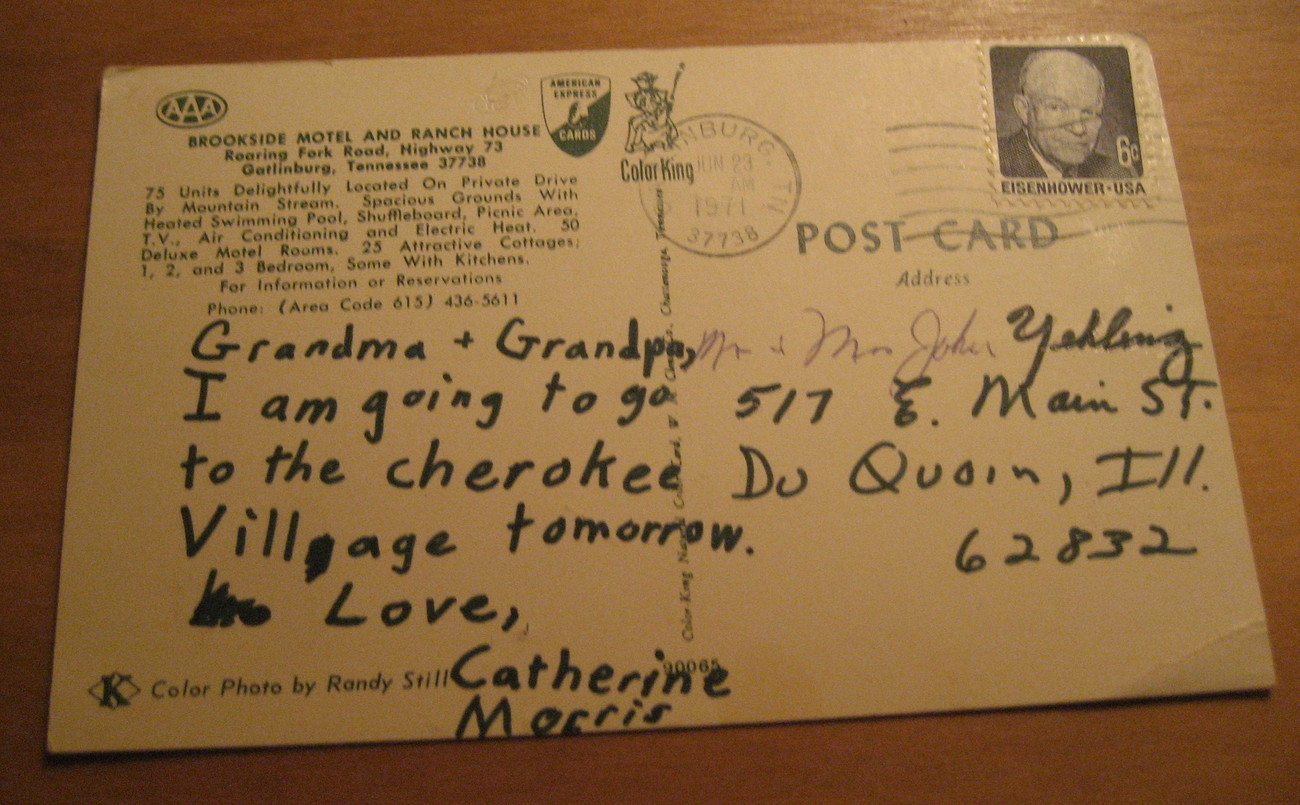 AAA
AMERICAN
EXPRESS
CARDS
BROOKSIDE MOTEL AND RANCH HOUSE
Roaring Fork Road, Highway 73
Gatlinburg, Tennessee 37738
75 Units Delightfully Located On Private Drive
By Mountain Stream. Spacious Grounds With
Heated Swimming Pool, Shuffleboard, Picnic Area,
T.V., Air Conditioning and Electric Heat. 50
Deluxe Motel Rooms. 25 Attractive Cottages;
1, 2, and 3 Bedroom, Some With Kitchens.
For Information or Reservations
Phone: (Area Code 615) 436-5611
Grandma + Grandpa,
I am going to go
to the cherokee
Village tomorrow.
Love,
Catherine
Morris
K Color Photo by Randy Still
90065
Color King
Color King Natural Chattanooga,
NBURG, TN
JUN 23
AM
1971
37738
6c
EISENHOWER·USA
POST CARD
Address
Mr + Mrs John Yehling
517 E. Main ST.
Du Quoin, Ill.
62832